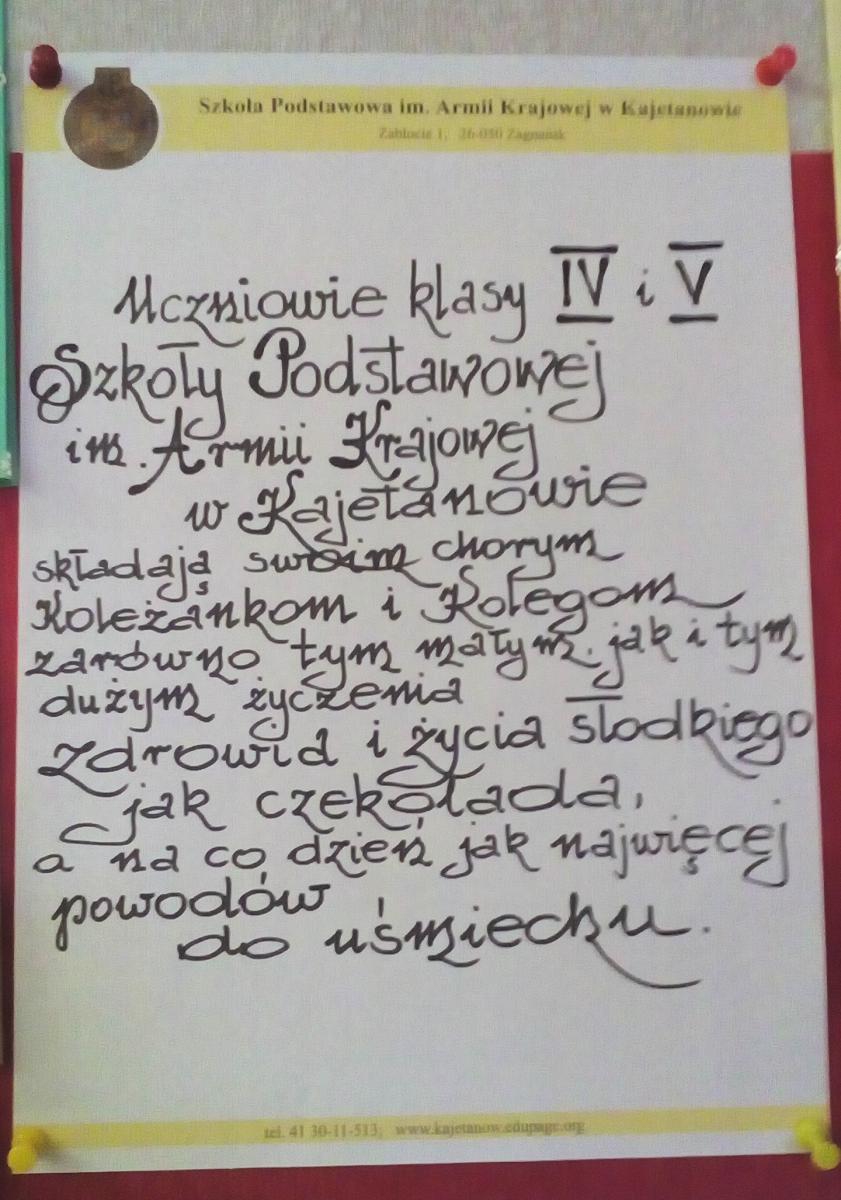 Szkoła Podstawowa im. Armii Krajowej w Kajetanowie
Zabłocie 1, 26-050 Zagnańsk
Uczniowie klasy IV i V
Szkoły Podstawowej
im. Armii Krajowej
w Kajetanowie
składają swoim chorym
Koleżankom i Kolegom
zarówno tym małym. jak i tym
dużym życzenia
zdrowia i życia słodkiego
jak czekolada,
a na co dzień jak najwięcej
powodów
do uśmiechu.
tel. 41 30-11-513; www.kajetanow.edupage.org